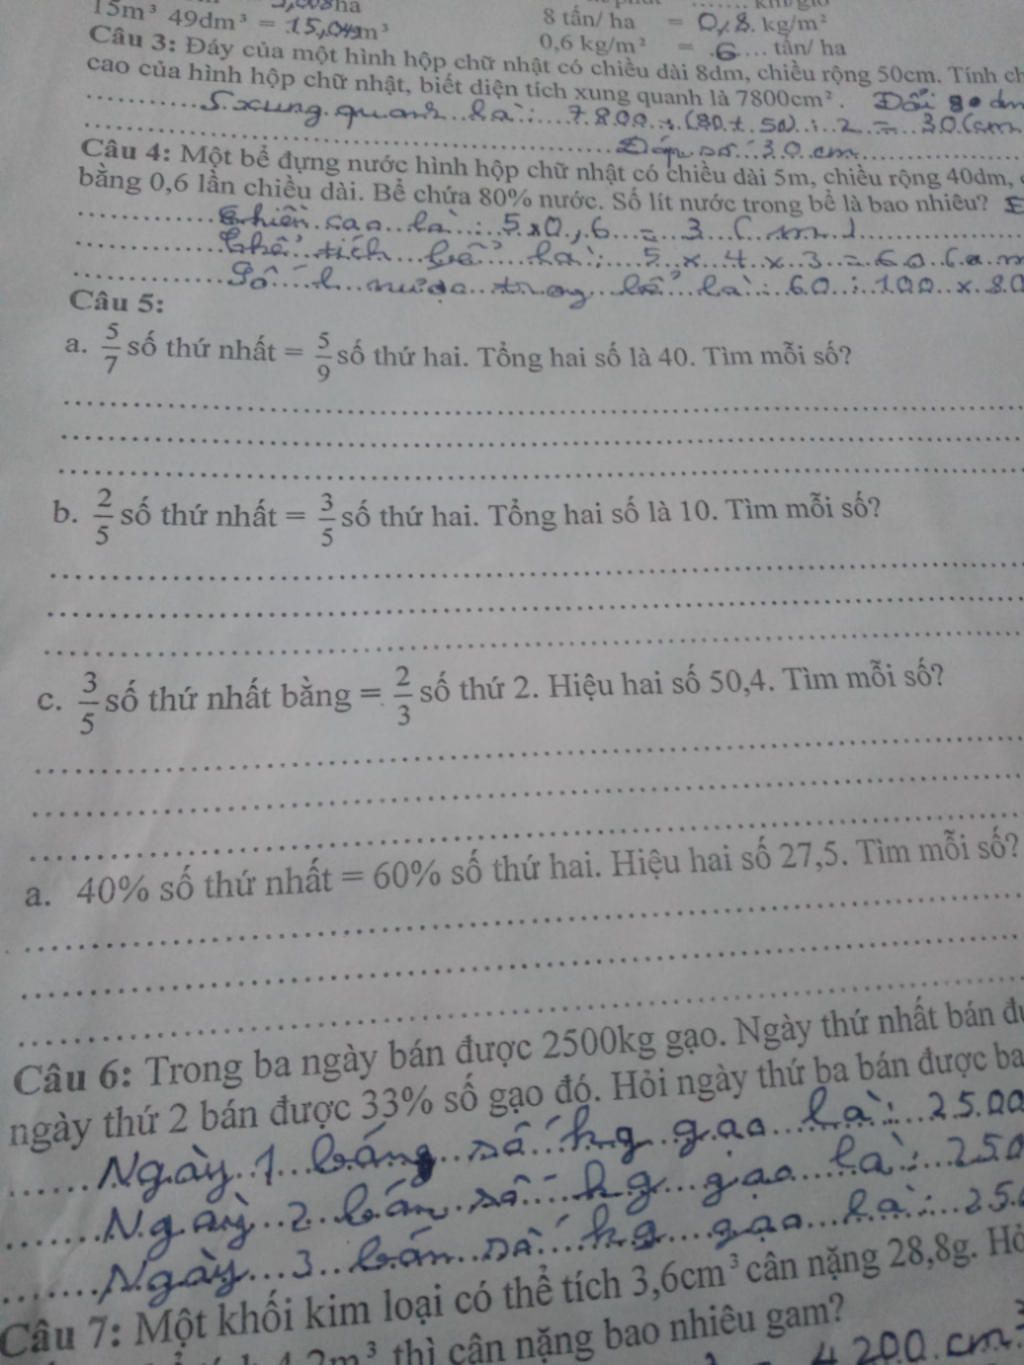 15m³ 49dm³ = 15,049m³
8 tấn/ ha = 0,8 kg/m²
0,6 kg/m² = 6 tấn/ ha
Câu 3: Đáy của một hình hộp chữ nhật có chiều dài 8dm, chiều rộng 50cm. Tính ch
cao của hình hộp chữ nhật, biết diện tích xung quanh là 7800cm². Đổi 80 dm
S xung quanh là: 7800 : (80 + 50) : 2 = 30 (cm
Đáp số: 30 cm
Câu 4: Một bể đựng nước hình hộp chữ nhật có chiều dài 5m, chiều rộng 40dm,
bằng 0,6 lần chiều dài. Bể chứa 80% nước. Số lít nước trong bể là bao nhiêu?
Chiều cao là: 5 x 0,6 = 3 (m)
Thể tích bể là: 5 x 4 x 3 = 60 (
Số l nước trong bể là: 60 : 100 x 80
Câu 5:
a. 5/7 số thứ nhất = 5/9 số thứ hai. Tổng hai số là 40. Tìm mỗi số?
b. 2/5 số thứ nhất = 3/5 số thứ hai. Tổng hai số là 10. Tìm mỗi số?
c. 3/5 số thứ nhất bằng = 2/3 số thứ 2. Hiệu hai số 50,4. Tìm mỗi số?
a. 40% số thứ nhất = 60% số thứ hai. Hiệu hai số 27,5. Tìm mỗi số?
Câu 6: Trong ba ngày bán được 2500kg gạo. Ngày thứ nhất bán đư
ngày thứ 2 bán được 33% số gạo đó. Hỏi ngày thứ ba bán được ba
Ngày 1 báng số kg gạo là: 2500
Ngày 2 bán số kg gạo là: 250
Ngày 3 bán số kg gạo là: 25
Câu 7: Một khối kim loại có thể tích 3,6cm³ cân nặng 28,8g. Hỏ
thì cân nặng bao nhiêu gam?
4200 cm³